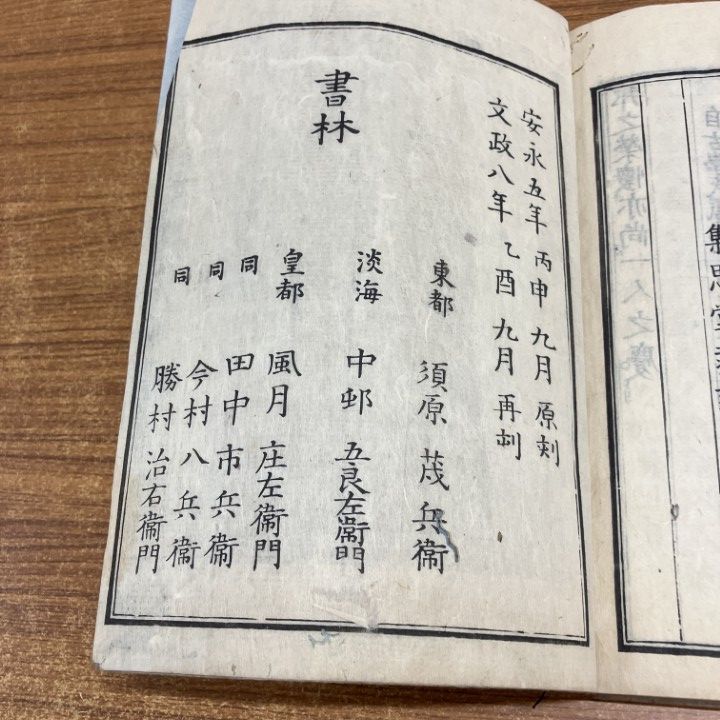 安永五年丙申九月原刻
文政八年乙酉九月再刻
東都 須原茂兵衞
淡海 中邨五良左衞門
皇都 風月庄左衞門
同 田中市兵衞
同 今村八兵衞
同 勝村治右衞門
書林